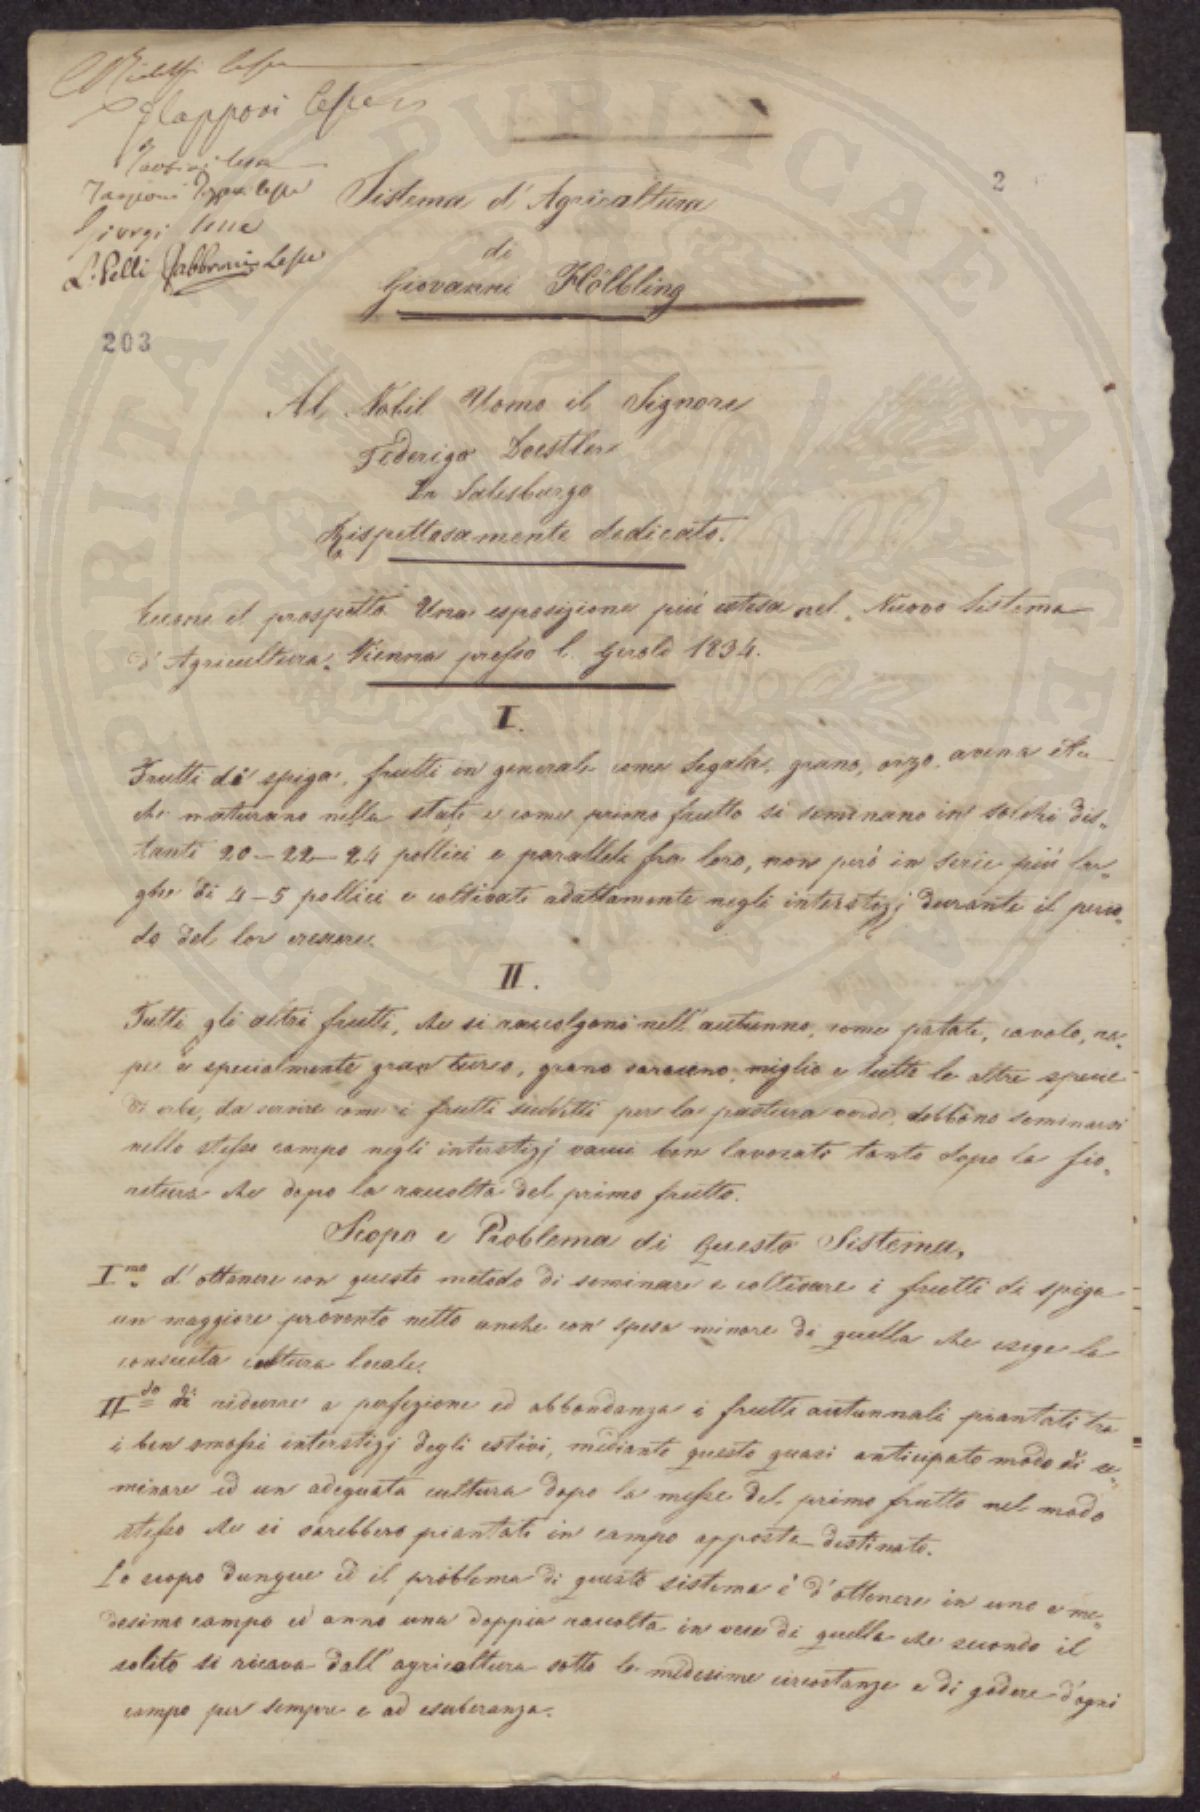 lesse
lesse
lesse
lesse
Giorgi lesse
L. Pelli Fabbroni Lesse
2
203
Sistema d'Agricoltura
di
Giovanni Hölbling
Al Nobil Uomo il Signore
Federigo
In Salisburgo
Rispettosamente dedicato.
il prospetto Una esposizione più estesa nel "Nuovo Sistema
d'Agricultura" Vienna presso C. Gerold 1834.
I.
Frutti di spiga, frutti in generale come Segala, grano, orzo, avena &c
che maturano nella state e come primo frutto si seminano in solchi dis-
tanti 20-22-24 pollici e paralleli fra loro, non però in serie più lar-
ghe di 4-5 pollici e coltivati adattamente negli interstizj durante il perio-
do del lor crescere.
II.
Tutti gli altri frutti, che si raccolgono nell'autunno, come patate, cavolo, ra-
pe e specialmente gran turco, grano saraceno, miglio e tutte le altre specie
di erbe, da servire come i frutti suddetti per la pastura verde, debbono seminarsi
nello stesso campo negli interstizj vacui ben lavorati tanto dopo la fio-
ritura che dopo la raccolta del primo frutto.
Scopo e Problema di Questo Sistema.
I.mo d'ottenere con questo metodo di seminare e coltivare i frutti di spiga
un maggiore provento netto anche con spesa minore di quella che esige la
consueta cultura locale.
II.do di ridurre a perfezione ed abbondanza i frutti autunnali piantati tra
i ben smossi interstizj degli estivi, mediante questo quasi anticipato modo di se-
minare ed un adeguata cultura dopo la messe del primo frutto nel modo
stesso che si sarebbero piantati in campo apposta destinato.
Lo scopo dunque ed il problema di questo sistema è d'ottenere in uno e me-
desimo campo ed anno una doppia raccolta in vece di quella che secondo il
solito si ricava dall'agricoltura sotto le medesime circostanze e di godere d'ogni
campo per sempre e ad esuberanza.